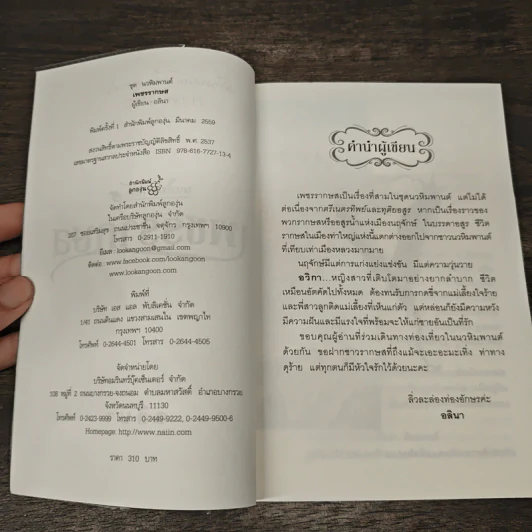 ชุด นวหิมพานต์
เพชรรากษส
ผู้เขียน อลินา
พิมพ์ครั้งที่ 1 สำนักพิมพ์ลูกองุ่น มีนาคม 2559
สงวนลิขสิทธิ์ตามพระราชบัญญัติลิขสิทธิ์ พ.ศ. 2537
เลขมาตรฐานสากลประจำหนังสือ ISBN 978-616-7727-13-4
สำนักพิมพ์
ลูกองุ่น
จัดทำโดยสำนักพิมพ์ลูกองุ่น
ในเครือบริษัทลูกองุ่น จำกัด
แขวงจันทรเกษม เขตจตุจักร กรุงเทพฯ 10900
โทรสาร 0-2911-5910
อีเมล lookangoon@gmail.com
ติดต่อ www.facebook.com/lookangoon
www.lookangoon.com
พิมพ์ที่
บริษัท เอส แอล พับลิเคชั่น จำกัด
กรุงเทพฯ 10400
โทรศัพท์ 0-2644-4501 โทรสาร 0-2644-4505
จัดจำหน่ายโดย
บริษัทอมรินทร์บุ๊คเซ็นเตอร์ จำกัด
108 หมู่ที่ 2 ถนนบางกรวย-จงถนอม ตำบลมหาสวัสดิ์ อำเภอบางกรวย
จังหวัดนนทบุรี 11130
โทรศัพท์ 0-2423-9999 โทรสาร 0-2449-9222, 0-2449-9500-6
Homepage: http://www.naiin.com
ราคา 310 บาท
คำนำผู้เขียน
เพชรรากษสเป็นเรื่องที่สามในชุดนวหิมพานต์ แต่ไม่ได้
ต่อเนื่องจากตรีเนตรทิพย์และทุติยอสูร หากเป็นเรื่องราวของ
พวกรากษสหรืออสูรน้ำแห่งเมืองนฤจักษ์ ในบรรดาอสูร ชีวิต
รากษสในเมืองท่าใหญ่แห่งนี้แตกต่างออกไปจากชาวนวหิมพานต์
ที่เทียบเท่าเมืองหลวงมากมาย
นฤจักษ์มีแต่การแก่งแย่งแข่งขัน มีแต่ความวุ่นวาย
อวิกา...หญิงสาวที่เติบโตมาอย่างยากลำบาก ชีวิต
เหมือนอัตคัดไปทั้งหมด ต้องทนรับการกดขี่จากแม่เลี้ยงใจร้าย
และพี่สาวลูกติดแม่เลี้ยงที่เห็นแก่ตัว แต่หล่อนก็ยังมีความหวัง
มีความฝันและมีแรงใจที่พร้อมจะให้แก่ชายอันเป็นที่รัก
ขอบคุณผู้อ่านที่ร่วมเดินทางท่องเที่ยวในนวหิมพานต์
ด้วยกัน ขอฝากชาวรากษสที่ถึงแม้จะเอะอะมะเทิ่ง ท่าทาง
ดุร้าย แต่ทุกตนก็มีหัวใจรักไว้ด้วยนะคะ
ลิ่วละล่องท่องอักษรค่ะ
อลินา